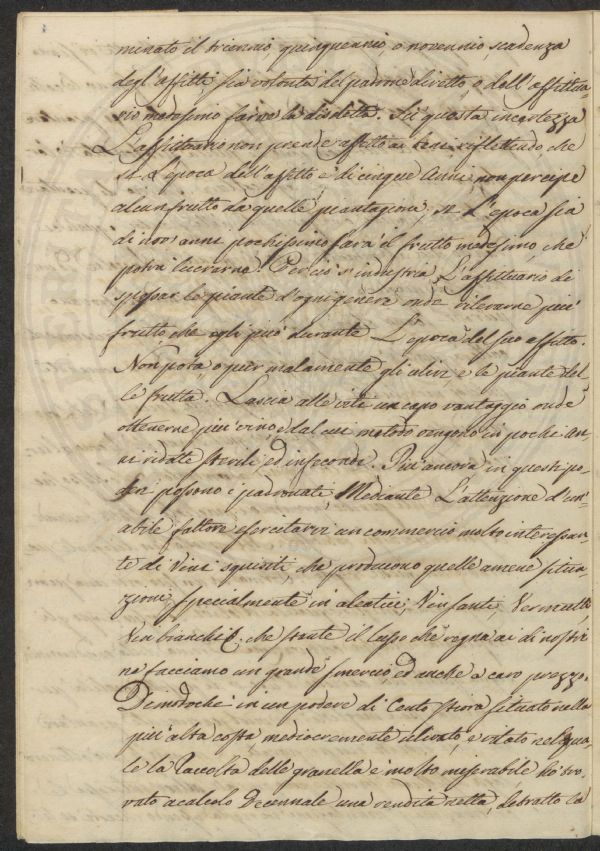 minato il triennio quinquennio, o novennio, scadenza
degl'affitti, sia volontà del padrone diretto o dell'affittua-
rio medesimo farne la disdetta. In questa incertezza
L'affittuario non prende affetto ai beni riflettendo che
se L'epoca dell'affitto è di cinque Anni, non percipe
alcun frutto da quelle piantagioni, se L'epoca sia
di nov'anni pochissimo sarà il frutto medesimo, che
potrà lucrarne. Perciò s'industria L'affittuario di
spossar le piante d'ogni genere onde rilevarne più
frutto, che egli può durante L'epoca del suo affitto.
Non pota, o pur malamente gli ulivi e le piante del-
le frutta. Lascia alle viti un capo vantaggio onde
ottenerne più vino, dal cui metodo vengono in pochi An-
ni ridotte sterili ed infeconde. Più ancora in questi po-
deri possono i padronati, Mediante L'attenzione d'un'
abile fattore esercitarvi un commercio molto interessan-
te di Vini squisiti, che producono quelle amene situa-
zioni, specialmente in aleatici, Vinsanti, Vermutte,
Vin bianchi &. che stante il lusso che regna ai dì nostri
ne facciamo un grande smercio, ed anche a caro prezzo.
Dimodochè in un podere di Cento stiora situato nella
più alta costa, mediocremente ulivato, e vitato nel qua-
le la Raccolta delle granella è molto miserabile, ho tro-
vato a calcolo Decennale una rendita netta, detratto la